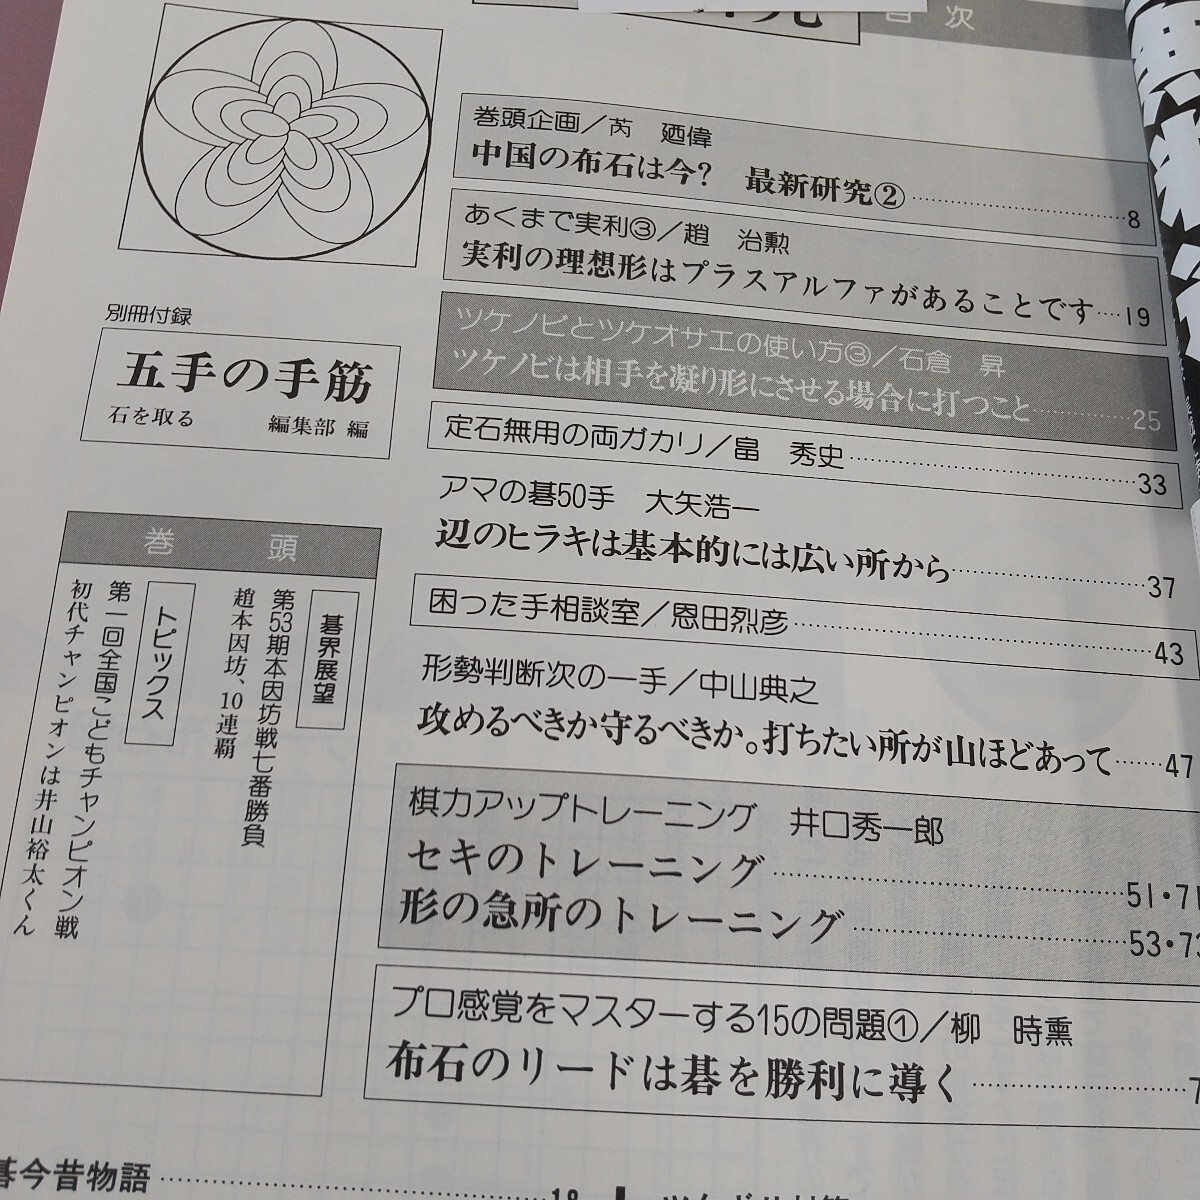 目次
巻頭企画／芮 廼偉
中国の布石は今? 最新研究②……8
あくまで実利③／趙 治勲
実利の理想形はプラスアルファがあることです……19
ツケノビとツケオサエの使い方③／石倉 昇
ツケノビは相手を凝り形にさせる場合に打つこと……25
定石無用の両ガカリ／畠 秀史……33
アマの碁50手 大矢浩一
辺のヒラキは基本的には広い所から……37
困った手相談室／恩田烈彦……43
形勢判断次の一手／中山典之
攻めるべきか守るべきか。打ちたい所が山ほどあって……47
棋力アップトレーニング 井口秀一郎
セキのトレーニング……51・71
形の急所のトレーニング……53・73
プロ感覚をマスターする15の問題①／柳 時熏
布石のリードは碁を勝利に導く……7
別冊付録
五手の手筋
石を取る 編集部 編
巻頭
碁界展望
第53期本因坊戦七番勝負
趙本因坊、10連覇
トピックス
第一回全国こどもチャンピオン戦
初代チャンピオンは井山裕太くん
碁今昔物語……18